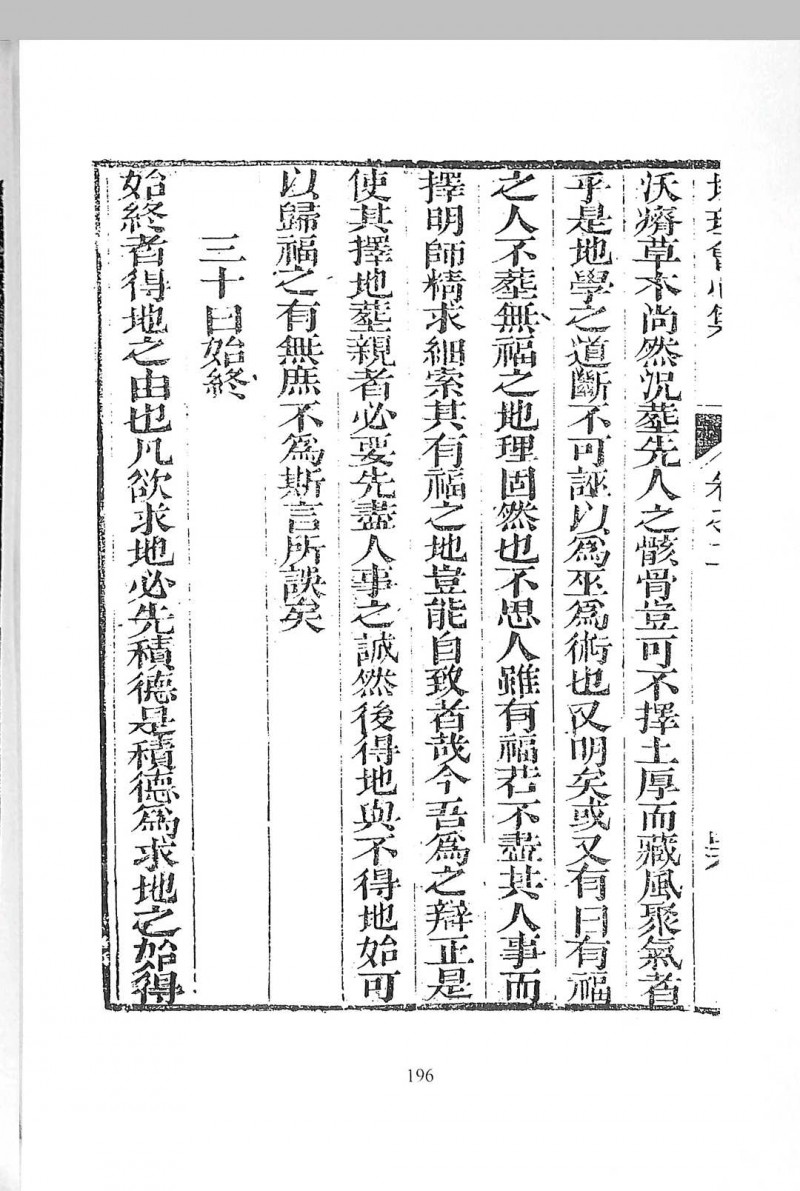 沃瘠草木尚然況塟先人之骸骨豈可不擇土厚而藏風聚氣者
乎是地學之道斷不可誣以為巫為術也又明矣或又有曰有福
之人不塟無福之地理固然也不思人雖有福若不盡其人事而
擇明師精求細索其有福之地豈能自致者哉今吾為之辯正是
使其擇地塟親者必要先盡人事之誠然後得地與不得地始可
以歸福之有無庶不為斯言所誤矣
三十曰始終
始終者得地之由也凡欲求地必先積德是積德為求地之始得
196